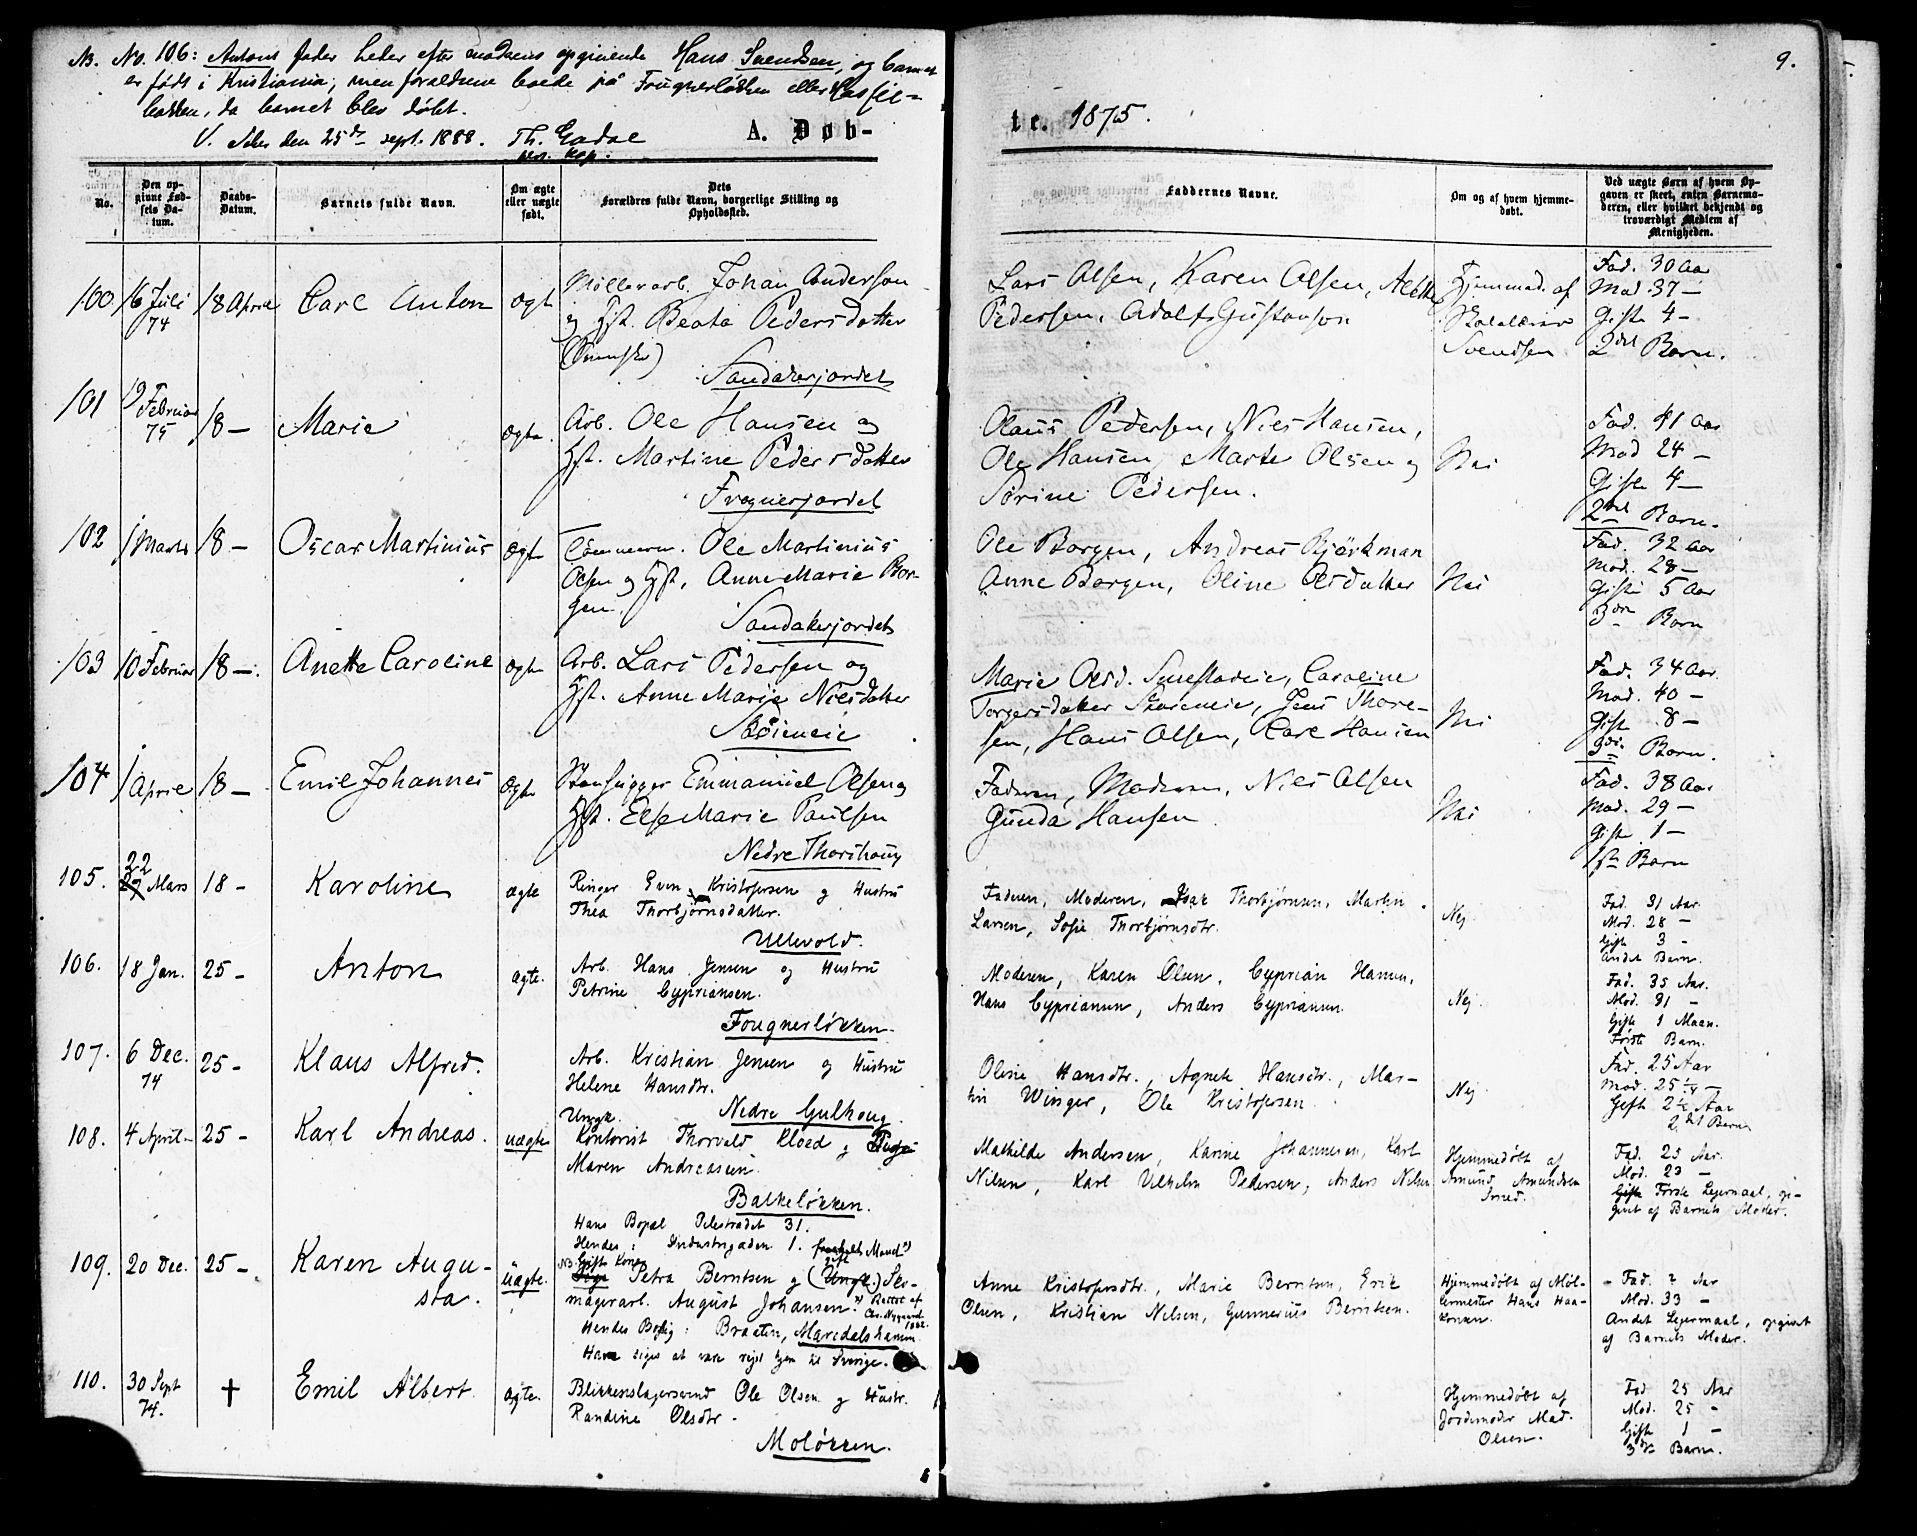 NB. No. 106: Antons Fader heder efter moderens opgivende Hans Svendsen, og barnet
er født i Kristiania; men forældrene boede på Fougnerløkken eller Hasle-
bakken, da barnet blev døbt.
V. Aker den 25de sept. 1888. Th. Gadae
pers. kap.
A. Døb-
te. 1875.
9.
No.
Den op-
givne Fød-
sels Da-
tum.
Daabs-
Datum.
Barnets fulde Navn.
Om ægte
eller uægte
født.
Dets
Forældres fulde Navn, borgerlige Stilling og
Opholdssted.
Faddernes Navne.
Om og af hvem hjemme-
døbt.
Ved uægte Børn af hvem Op-
gaven er skeet, enten Barnemo-
deren, eller hvilket bekjendt og
troværdigt Medlem af
Menigheden.
100 16 Juli 74 18 April Carl Anton Ægte
Møllerarb. Johan Anderson
og Hst. Beata Pedersdatter
(Svenske)
Sandakerjordet
Lars Olsen, Karen Olsen, Alette
Pedersen, Adolf Gustavson
Hjemmed. af
Skolelærer
Svendsen
Fad. 30 Aar
Mod. 37 –
Gifte 4 –
2det Barn.
101 19 Februar 75 18 – Marie Ægte.
Arb. Ole Hansen og
Hst. Martine Pedersdatter
Frognerjordet
Olaus Pedersen, Niels Hansen,
Ole Hansen, Marte Olsen og
Sørine Pedersen.
Nei
Fad. 41 Aar
Mod 24 –
Gifte 4 –
2det Barn.
102 1 Marts 18 – Oscar Martinius Ægte
Tømmerm. Ole Martinius
Olsen og Hst. Anne Marie Bor-
gen.
Sandakerjordet
Ole Borgen, Andreas Björkman
Anne Borgen, Oline Olsdatter
Nei
Fad. 32 Aar
Mod. 28 –
Gifte 5 Aar
3die Barn
103 10 Februar 18 –. Anette Caroline Ægte
Arb. Lars Pedersen og
Hst. Anne Marie Nielsdatter
Marie Olsd. Caroline
Torgersdatter Jens Thore-
sen, Hans Olsen, Carl Hansen
Nei
Fad. 34 Aar.
Mod. 40 –
Gifte 8 –
3die Barn.
104 1 April 18 – Emil Johannes Ægte
Stenhugger Emmanuel Olsen og
Hst. Else Marie Paulsen
Nedre Thorshoug
Faderen, Moderen, Niels Olsen
Gunda Hansen.
Nei
Fad. 38 Aar
Mod. 29 –
Gifte 1 –
1ste Barn
105. 22 Mars 18 – Karoline ægte
Ringer Even Kristofersen og Hustru
Thea Thorbjørnsdatter.
Ullevold.
Faderen, Moderen, Isak Thorbjørnsen, Martin
Larsen, Sofie Thorbjørnsdtr.
Nej
Fad. 31 Aar.
Mod. 28 –
Gifte 3 –
Andet Barn.
106. 18 Jan. 25 – Anton ægte.
Arb. Hans Jensen og Hustru
Petrine Cypriansen.
Fougnerløkken.
Moderen, Karen Olsen, Cyprian Hansen,
Hans Cypriansen, Anders Cypriansen.
Nej
Fad. 35 Aar.
Mod. 31 –
Gifte 1 Maan.
Første Barn.
107. 6 Dec. 74 25 – Klaus Alfred.
Arb. Kristian Jensen og Hustru
Helene Hansdtr.
Nedre Gulhoug.
Oline Hansdtr., Agnete Hansdtr., Mar-
tin Winger, Ole Kristofersen.
Nej
Fad. 25 Aar
Mod. 25 1/4 –
Gifte 2 1/2 Aar
2det Barn
108. 4 April – 25 – Karl Andreas. uægte
Ungk.
Kontorist Thorvald Kloed og Pige
Maren Andreasen.
Balkeløkken.
Hans Bopæl Pilestrædet 31.
Hendes: Industrigaden 1.
Mathilde Andersen, Karine Johannesen, Karl
Nilsen, Karl Vilhelm Pedersen, Anders Nilsen
Hjemmedøbt af
Amund Amundsen
Smed.
Fad. 25 Aar.
Mod. 23 –
Gifte Første Lejermaal, op-
givet af Barnets Moder.
109. 20 Dec. 25 – Karen Augu-
sta. uægte.
NB. Gift Kone
Pige Petra Berntsen og (Ungk.) Sk-
magerarb. August Johansen.
Rettet af
Chr. Nygaard
1902.
Hendes Bolig: Braaten, Maridalshamm.
Han siges at være rejst hjem til Sverige.
Anne Kristofersdtr., Marie Berntsen, Erik
Olsen, Kristian Nilsen, Gunnerius Berntsen.
Hjemmedøbt af Møl-
lermester Hans Haa-
konsen.
Fad. ? Aar
Mod. 33 –
Andet Lejermaal, opgivet
af Barnets Moder.
110. 30 Sept 74. † Emil Albert. ægte.
Blikkenslagersvend Ole Olsen og Hustr.
Randine Olsdtr.
Moløkken.
Hjemmedøbt af
Jordemoder Mad.
Olsen.
Fad. 25 Aar
Mod. 25 –
Gifte 1 –
3die Barn.